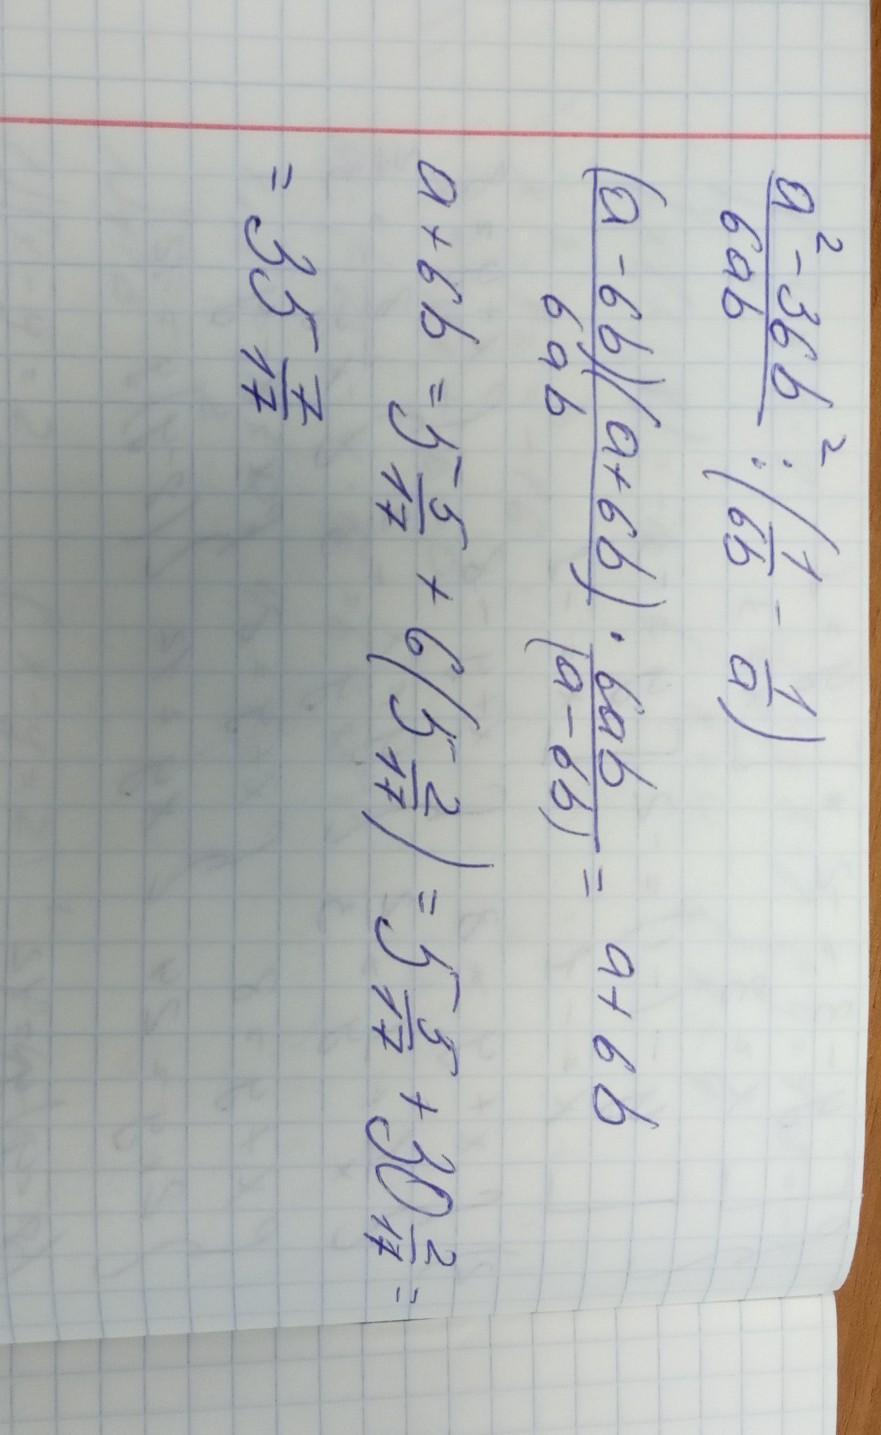 (a² - 36b²)/(6ab) : (1/(6b) - 1/a)
((a - 6b)(a + 6b))/(6ab) · (6ab)/((a - 6b)) = a + 6b
a + 6b = 5 5/17 + 6(5 2/17) = 5 5/17 + 30 2/17 =
= 35 7/17